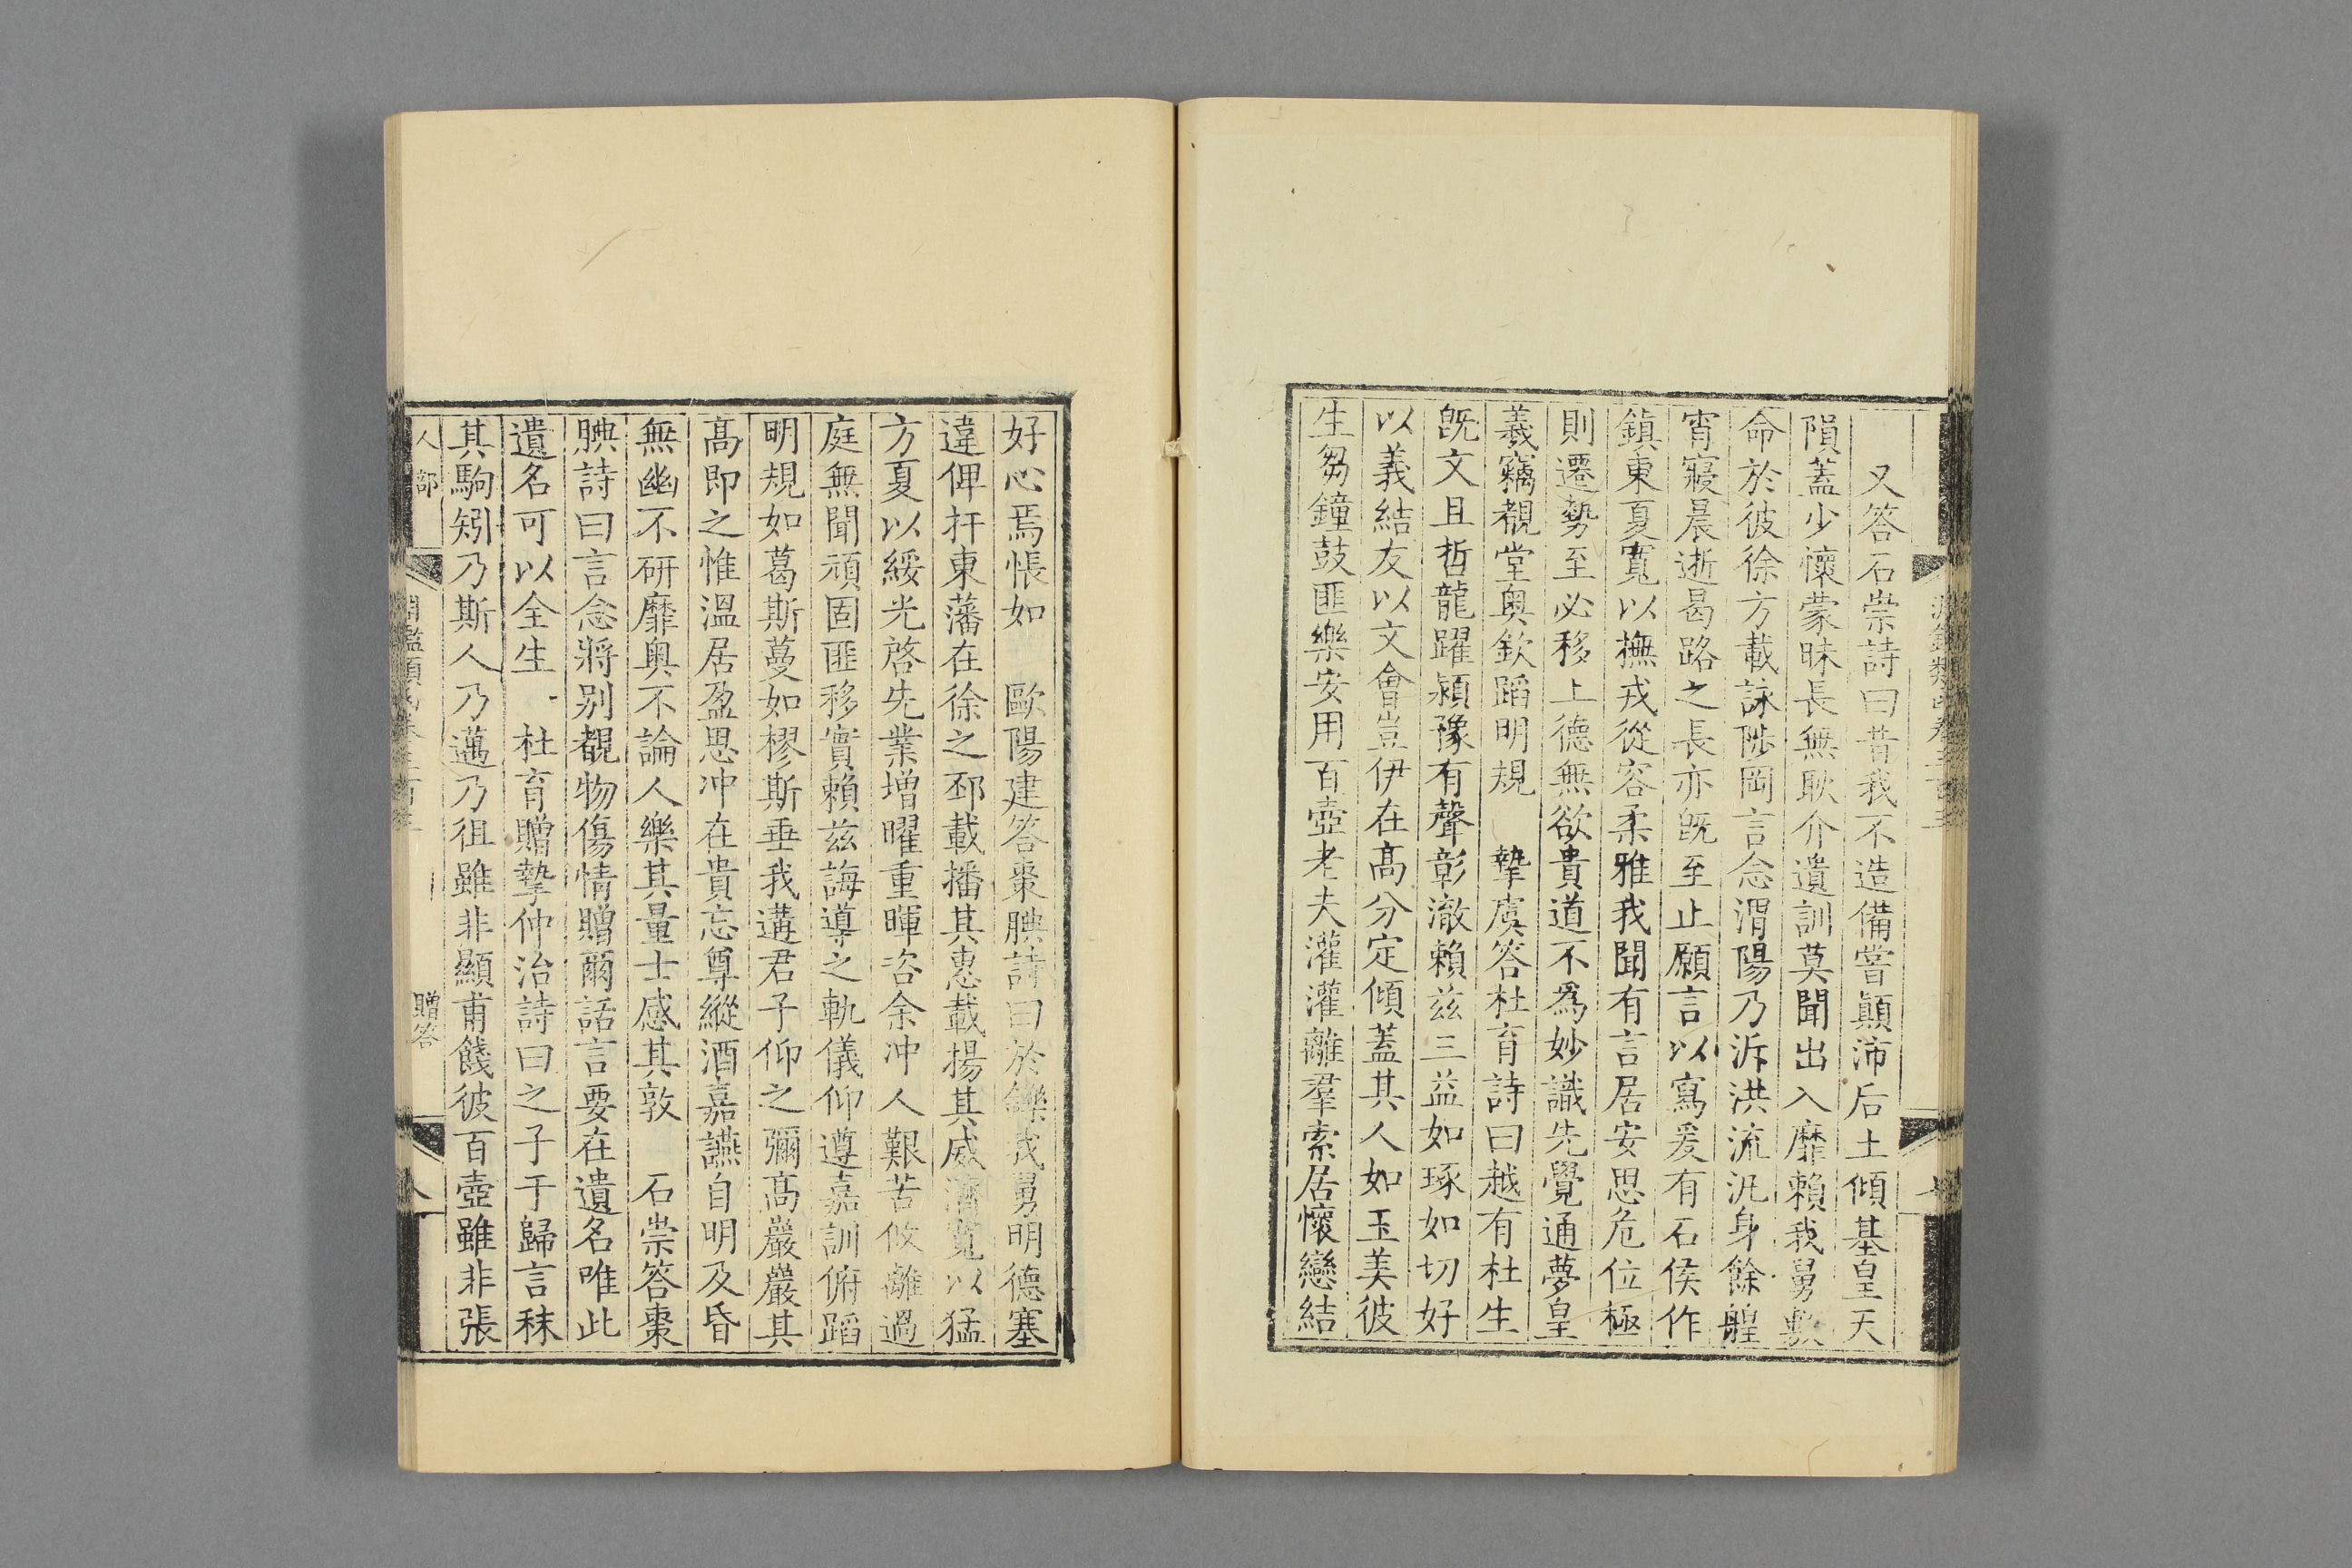 又答石崇詩曰昔我不造備嘗顛沛后土傾基皇天
隕蓋少懷蒙昧長無耿介遺訓莫聞出入靡賴我舅敷
命於彼徐方載詠陟岡言念渭陽乃泝洪流汎身餘艎
宵寢晨逝曷路之長亦旣至止願言以寫爰有石侯作
鎮東夏寬以撫戎從容柔雅我聞有言居安思危位極
則遷勢至必移上德無欲貴道不爲妙識先覺通夢皇
羲竊覩堂奥欽蹈明規 摯虞答杜育詩曰越有杜生
旣文且哲龍躍潁豫有聲彰澈賴茲三益如琢如切好
以義結友以文會豈伊在高分定傾蓋其人如玉美彼
生芻鐘鼓匪樂安用百壺老夫灌灌離羣索居懷戀結
好心焉悵如 歐陽建答棗腆詩曰於鑠我舅明德塞
違俾扞東藩在徐之邳載播其惠載揚其威濟寬以猛
方夏以綏光啓先業增曜重暉咨余沖人艱苦攸離過
庭無聞頑固匪移實賴兹誨導之軌儀仰遵嘉訓俯蹈
明規如葛斯蔓如樛斯垂我遘君子仰之彌高巖巖其
高即之惟溫居盈思冲在貴忘尊縱酒嘉讌自明及昏
無幽不研靡奥不論人樂其量士感其敦 石崇答棗
腆詩曰言念將别覩物傷情贈爾話言要在遺名唯此
遺名可以全生 杜育贈摯仲治詩曰之子于歸言秣
其駒矧乃斯人乃邁乃徂雖非顯甫餞彼百壺雖非張
人部
贈答
八